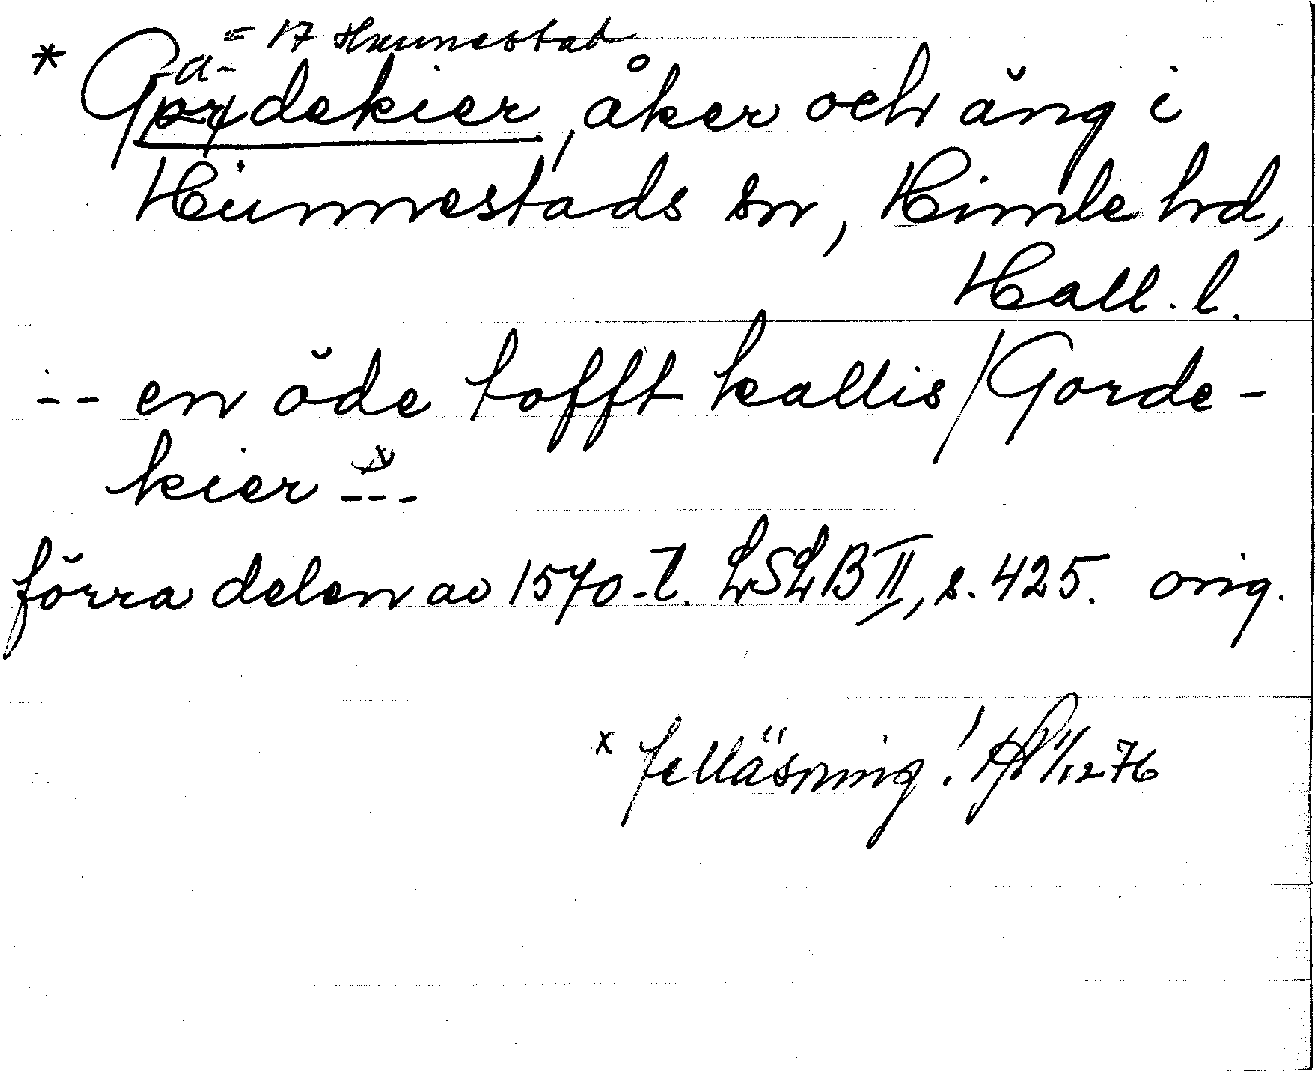 = 17 Hunnestad
* Gardekier, åker och äng i
Hunnestads sn, Himle hd,
Hall. l.
-- en öde tofft kallis / Gorde-
kier x ---
förra delen av 1570-t. LSLB II, s. 425. orig.
x felläsning! 1/12 76